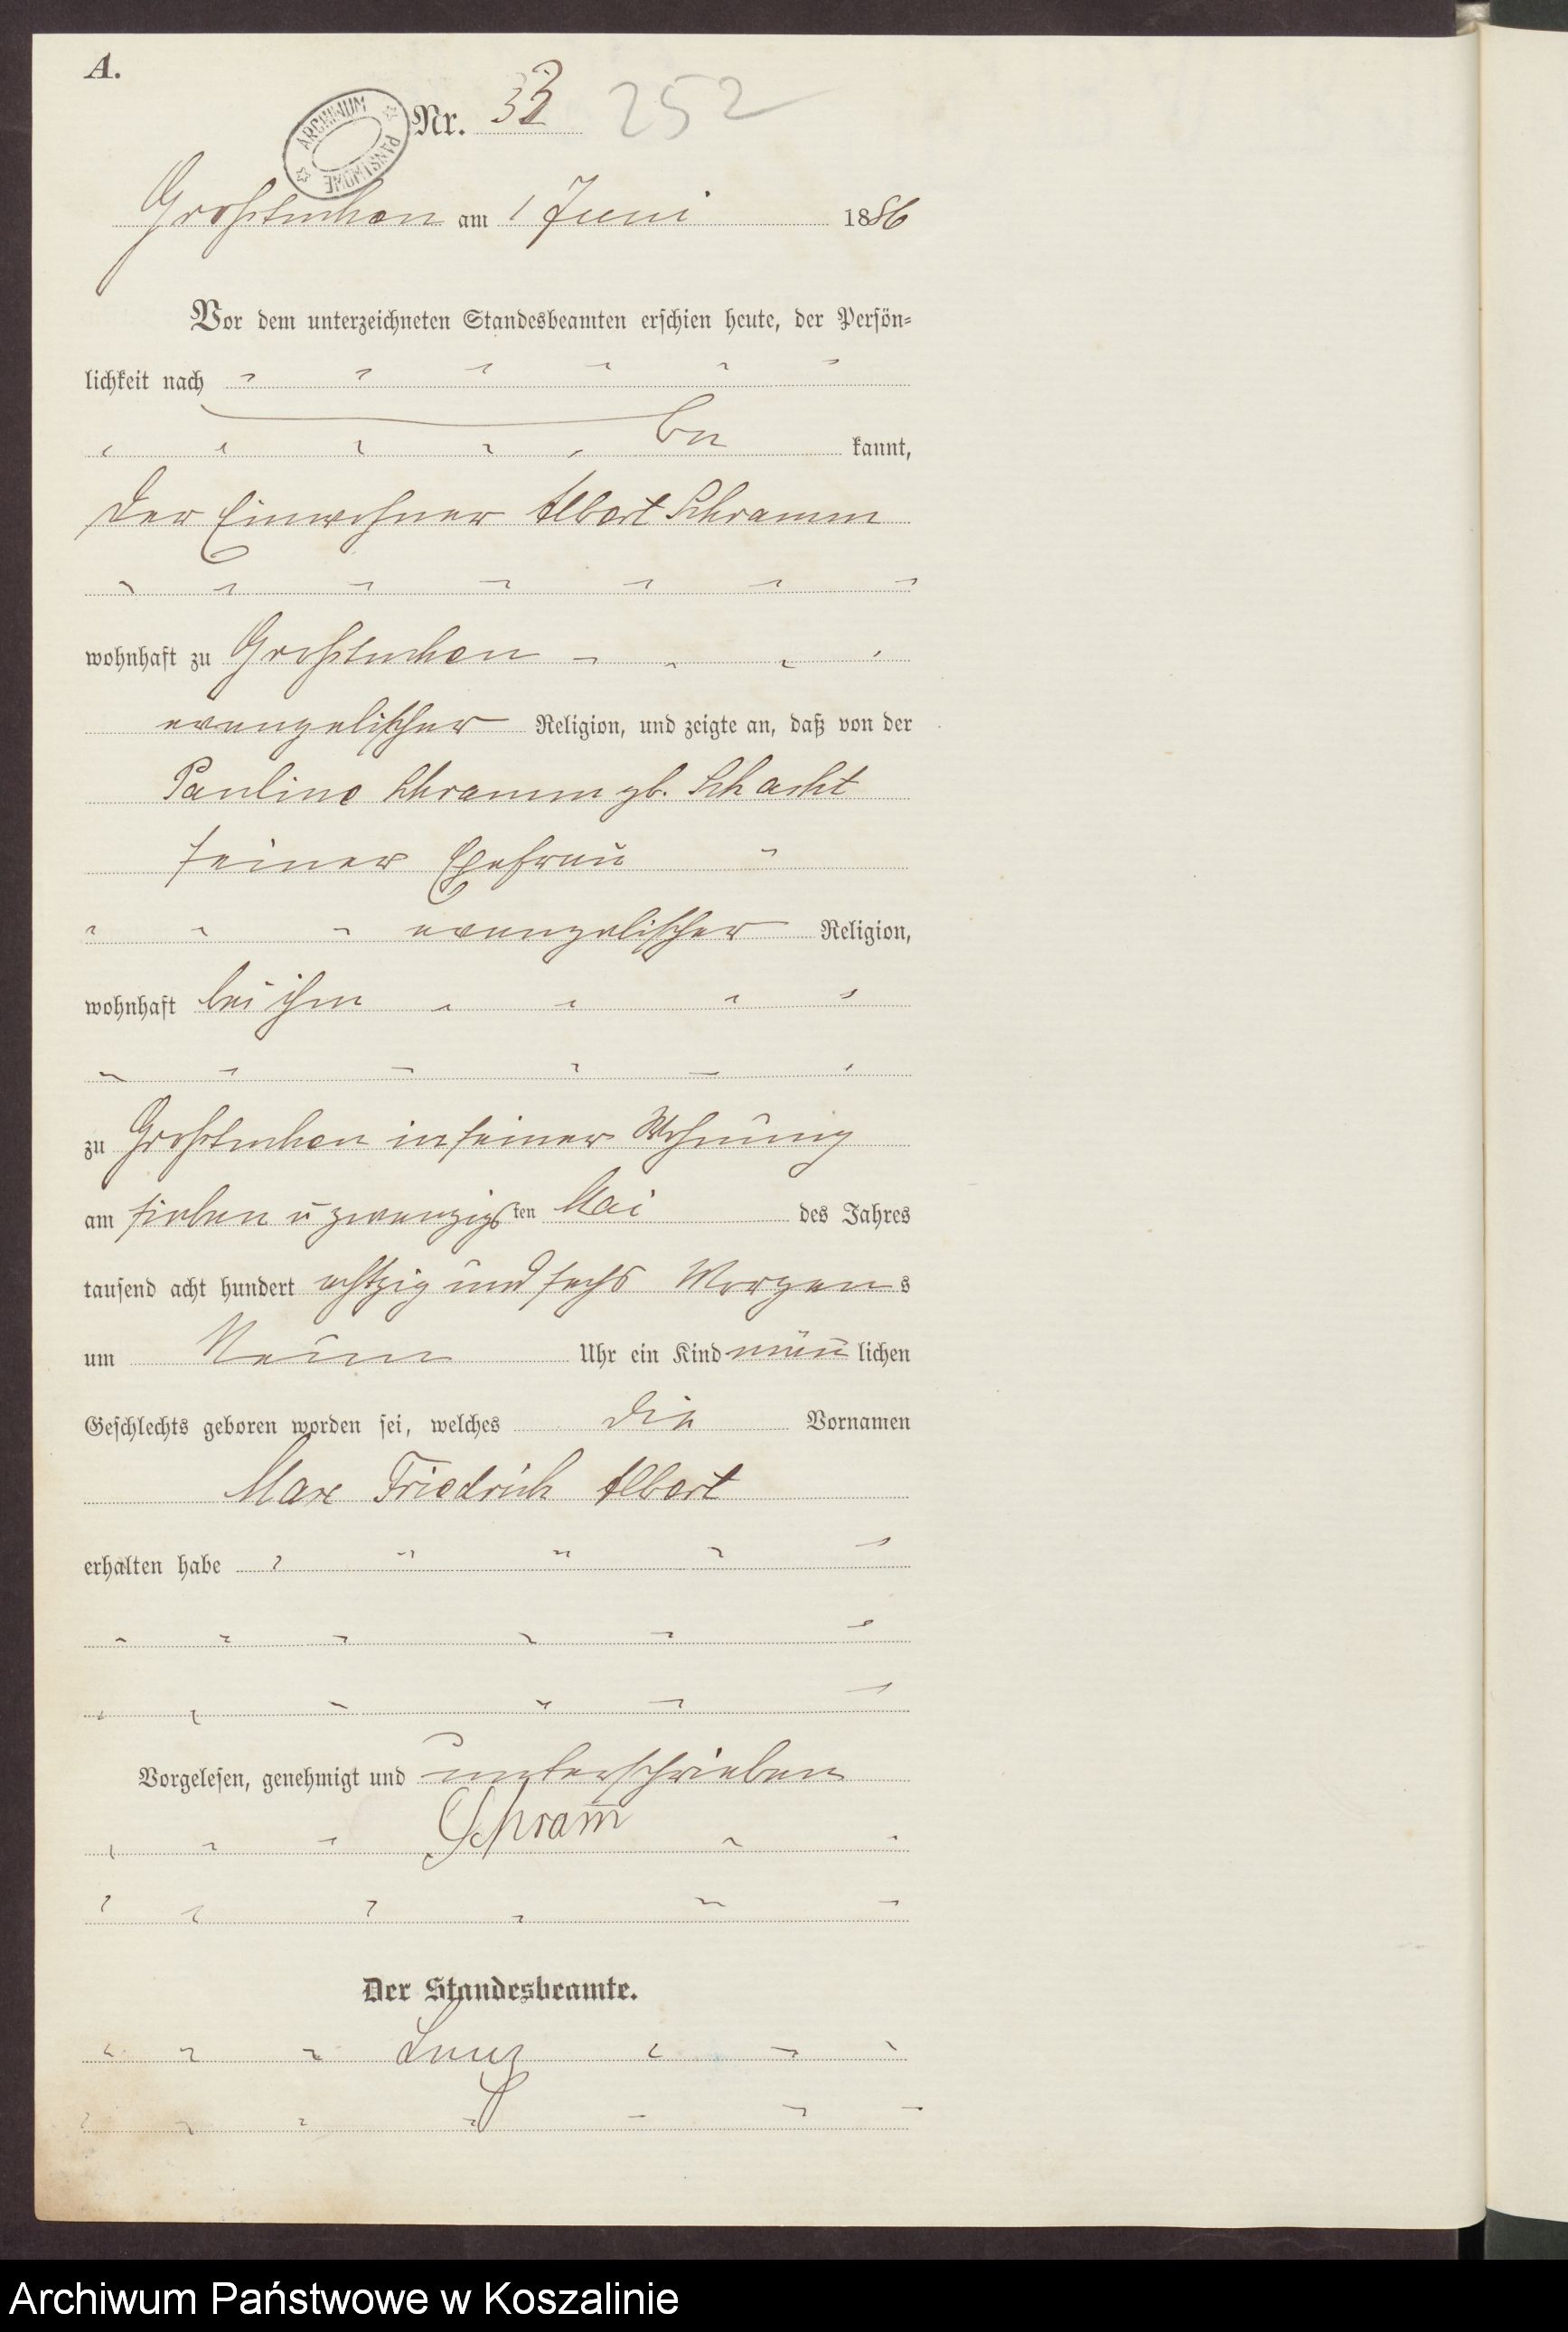 A.
ARCHIWUM PAŃSTWOWE
Nr. 33 252
Großtuchen am 1 Juni 1886
Vor dem unterzeichneten Standesbeamten erschien heute, der Persön=
lichkeit nach
be kannt,
der Einwohner Albert Schramm
wohnhaft zu Großtuchen
evangelischer Religion, und zeigte an, daß von der
Pauline Schramm gb. Schacht
seiner Ehefrau
evangelischer Religion,
wohnhaft bei ihm
zu Großtuchen in seiner Wohnung
am sieben u zwanzigsten Mai des Jahres
tausend acht hundert achtzig und sechs Morgens
um Neun Uhr ein Kind männlichen
Geschlechts geboren worden sei, welches die Vornamen
Max Friedrich Albert
erhalten habe
Vorgelesen, genehmigt und unterschrieben
Schram̅
Der Standesbeamte.
Archiwum Państwowe w Koszalinie